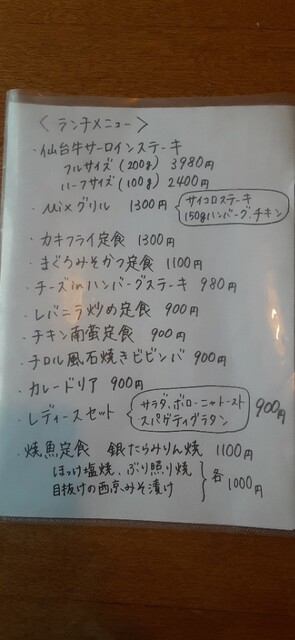 〈ランチメニュー〉
・仙台牛サーロインステーキ
フルサイズ(200g) 3980円
ハーフサイズ(100g) 2400円
・Mixグリル 1300円 サイコロステーキ
150gハンバーグ、チキン
・カキフライ定食 1300円
・まぐろみそかつ定食 1100円
・チーズinハンバーグステーキ 980円
・レバニラ炒め定食 900円
・チキン南蛮定食 900円
・チロル風石焼きビビンバ 900円
・カレードリア 900円
・レディースセット サラダ、ボローニャトースト
スパゲティグラタン 900円
・焼魚定食 銀たらみりん焼 1100円
ほっけ塩焼、ぶり照り焼
目抜けの西京みそ漬け 各1000円